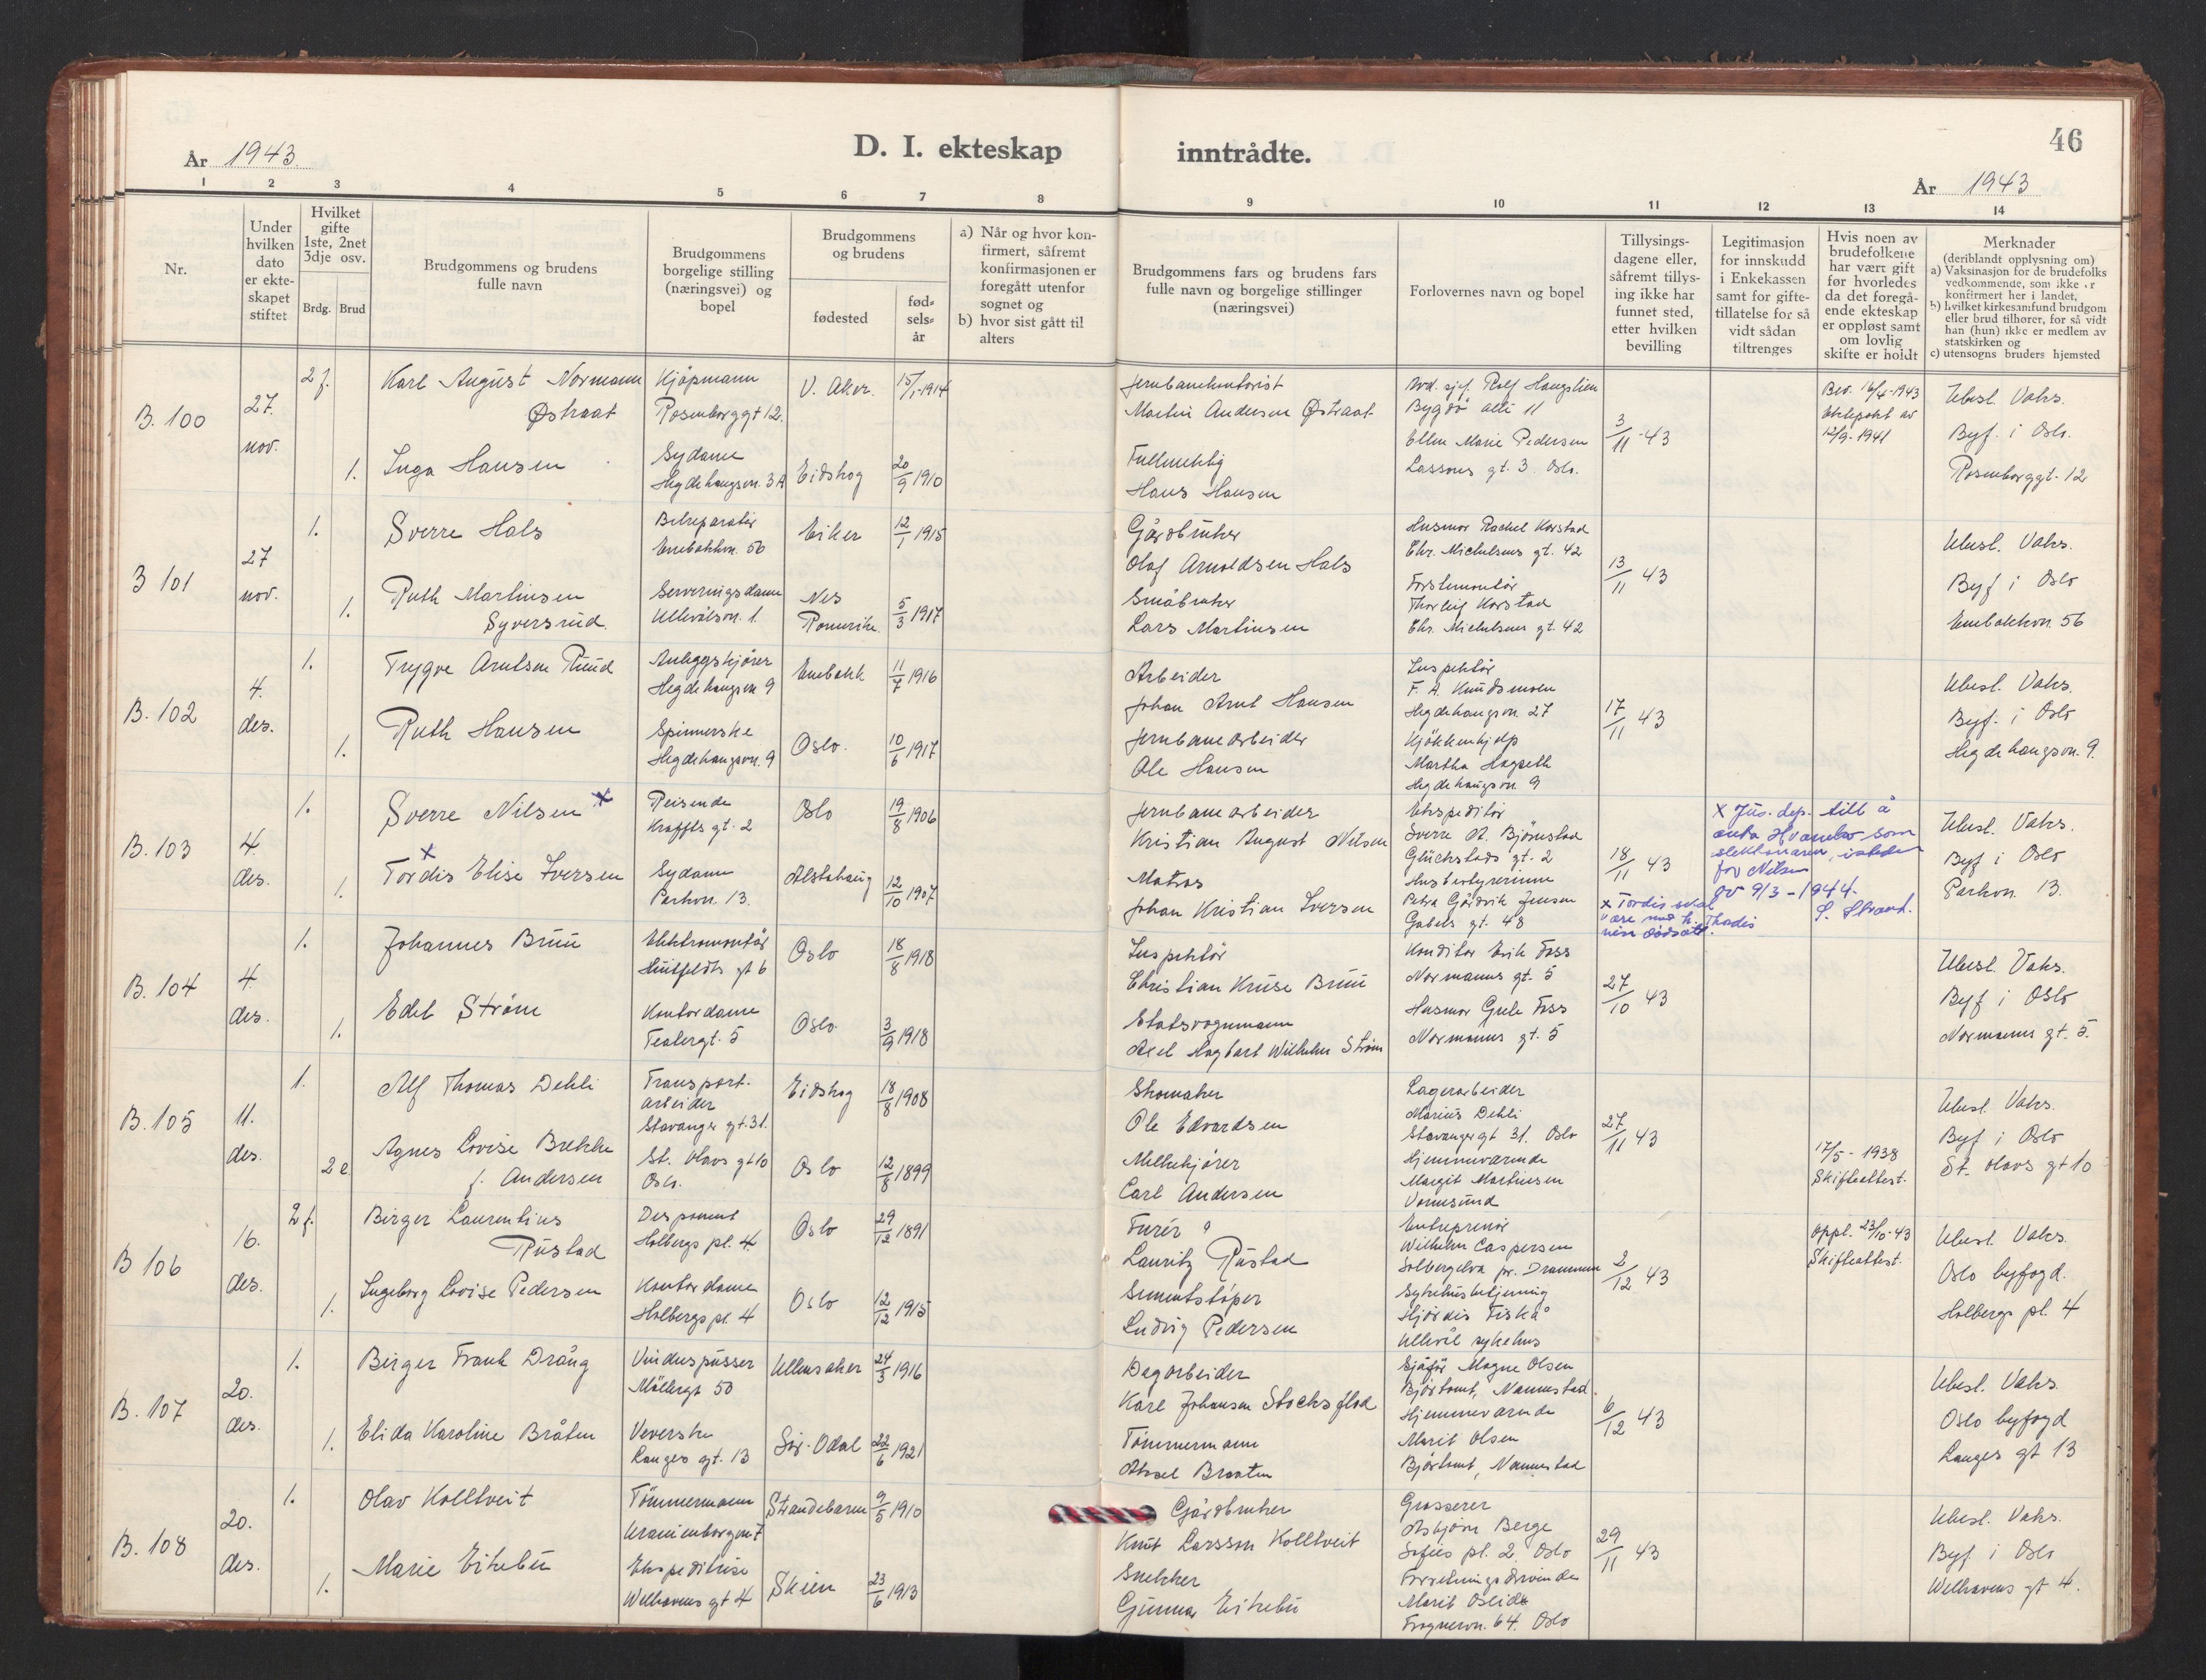 46
År 1943.
D. I. ekteskap inntrådte.
År 1943
1 2 3 4 5 6 7 8 9 10 11 12 13 14
Nr.
Under hvilken dato er ekteskapet stiftet
Hvilket gifte 1ste, 2net 3dje osv.
Brdg. Brud
Brudgommens og brudens fulle navn
Brudgommens borgelige stilling (næringsvei) og bopel
Brudgommens og brudens
fødested
fødselsår
a) Når og hvor konfirmert, såfremt konfirmasjonen er foregått utenfor sognet og
b) hvor sist gått til alters
Brudgommens fars og brudens fars fulle navn og borgelige stillinger (næringsvei)
Forlovernes navn og bopel
Tillysingsdagene eller, såfremt tillysing ikke har funnet sted, etter hvilken bevilling
Legitimasjon for innskudd i Enkekassen samt for giftetillatelse for så vidt sådan tiltrenges
Hvis noen av brudefolkene har vært gift før hvorledes da det foregående ekteskap er oppløst samt om lovlig skifte er holdt
Merknader
(deriblandt opplysning om)
a) Vaksinasjon for de brudefolks vedkommende, som ikke er konfirmert her i landet,
b) hvilket kirkesamfund brudgom eller brud tilhører, for så vidt han (hun) ikke er medlem av statskirken og
c) utensogns bruders hjemsted
B. 100
27.
nov.
2 f.
Karl August Normann
Østraat
Kjøpmann
Rosenborggt 12.
V. Aker.
15/1-1914
Jernbanekontorist
Martin Andersen Østraat
Rolf Haugslien
Bygdø alle 11
Ellen Marie Pedersen
Lassons gt. 3. Oslo.
3/11-43
Bev. 16/4-1943
Ektepakt av
12/9-1941
Ubesl. Vaks.
Byf. i Oslo.
Rosenborggt. 12
1.
Inga Hansen
Sydame
Hegdehaugsvn. 3A
Eidskog
20/9 1910
Fullmektig
Hans Hansen
B 101
27
nov.
1.
Sverre Hals
Bilreparatør
Enebakkvn. 56
Eiker
12/1 1915
Gårdbruker
Olaf Arnoldsen Hals
Husmor Rachel Korstad
Chr. Michelsens gt. 42
13/11 43
Ubesl. Vaks.
Byf i Oslo
Enebakkvn. 56
1.
Ruth Martinsen
Syversrud.
Serveringsdame
Ullevålsvn. 1.
Nes
Romerike.
5/3 1917
Småbruker
Lars Martinsen
Thorleif Korstad
Chr. Michelsens gt. 42
B. 102
4.
des.
1.
Trygve Arntsen Ruud
Anleggskjører
Hegdehaugsvn 9
Enebakk
11/7 1916
Arbeider
Johan Arnt Hansen
Inspektør
F. A. Knudsmoen
Hegdehaugsvn. 27
17/11 43
Ubesl. Vaks.
Byf. i Oslo
Hegdehaugsvn. 9.
1.
Ruth Hansen
Spinnerske
Hegdehaugsvn. 9
Oslo.
10/6 1917
Jernbanearbeider
Ole Hansen
Kjøkkenhjelp
Martha Hagseth
Hegdehaugsvn. 9
B. 103
4.
des.
1.
Sverre Nilsen x
Reisende
Kraffts gt. 2
Oslo
19/8 1906
Jernbanearbeider
Kristian August Nilsen
Ekspeditør
Sverre A. Bjørnstad
Glückstads gt. 2
18/11 43
x Jus. dep. till å
anta Hvambo som
slektsnavn, istedet
for Nilsen
av 9/3-1944.
S. Strand.
Ubesl. Vaks.
Byf i Oslo
Parkvn. 13.
1.
x
Tordis Elise Iversen
Sydame
Parkvn. 13.
Alstahaug
12/10 1907
Matros
Johan Kristian Iversen
Husbestyrerinne
Petra Gårdvik Jensen
Gabels gt. 48
x Tordis skal
være med h. Thordis
B. 104
4
des.
1.
Johannes Bruu
Elektromontør
Huitfeldts gt 6
Oslo
18/8 1918
Inspektør
Christian Kruse Bruu
Konditor Erik Foss
Normanns gt. 5
27/10 43
Ubesl. Vaks.
Byf i Oslo
Normanns gt. 5.
1.
Edel Strøm
Kontordame
Teatergt. 5
Oslo
3/9 1918
Statsvognmann
Axel Hagbart Wilhelm Strøm
Husmor Grete Foss
Normanns gt. 5
B. 105
11.
des.
1.
Alf Thomas Dehli
Transport-
arbeider
Stavanger gt. 31.
Eidskog
18/8 1908
Skomaker
Ole Edvardsen
Lagerarbeider
Marius Dehli
Stavangergt 31. Oslo
27/11 43
Ubesl. Vaks.
Byf i Oslo
St. Olavs gt 10
2 e
Agnes Lovise Brekke
f. Andersen
St. Olavs gt 10
Oslo.
Oslo
12/8 1899
Melkekjører
Carl Andersen
Hjemmeværende
Margit Martinsen
Vormsund
17/5-1938
Skifteattest.
B 106
16.
des.
2 f.
Birger Laurentius
Rustad
Disponent
Holbergs pl. 4.
Oslo
29/12 1891
Furér
Lauritz Rustad
Entreprenør
Wilhelm Caspersen
Solbergelva pr. Drammen
2/12 43
oppl. 23/10-43
Skifteattest.
Ubesl. Vaks.
Oslo byfogd.
Holbergs pl. 4
1.
Ingeborg Lovise Pedersen
Kontordame
Holbergs pl. 4
Oslo
12/12 1915
Sementstøper
Ludvig Pedersen
Sykehusbetjening
Hjørdis Fiskå
Ullevål sykehus
B. 107
20.
des.
1.
Birger Frank Drång
Vinduspusser
Møllergt 50
Ullensaker
24/3 1916
Dagarbeider
Karl Johansen Stocksflod
Sjåfør Magne Olsen
Bjørtomt, Nannestad.
6/12 43
Ubesl. Vaks.
Oslo byfogd
Langes gt 13
1.
Elida Karoline Bråten
Veverske
Langes gt. 13
Sør-Odal
22/6 1921
Tømmermann
Aksel Braaten
Hjemmeværende
Marit Olsen
Bjørtomt, Nannestad
B. 108
20.
des.
1.
Olav Kolltveit
Tømmermann
Uranienborgvn 7
Strandebarm
9/5 1910
Gårdbruker
Knut Larsson Kolltveit
Grosserer
Asbjørn Berge
Sofies pl. 2. Oslo
29/11 43
Ubesl. Vaks.
Byf. i Oslo
Welhavens gt 4.
1.
Marie Eikebu
Ekspeditrise
Welhavens gt 4
Skien
23/6 1913
Snekker
Gunnar Eikebu
Forretningsdrivende
Marit Oslid
Frognervn. 64. Oslo